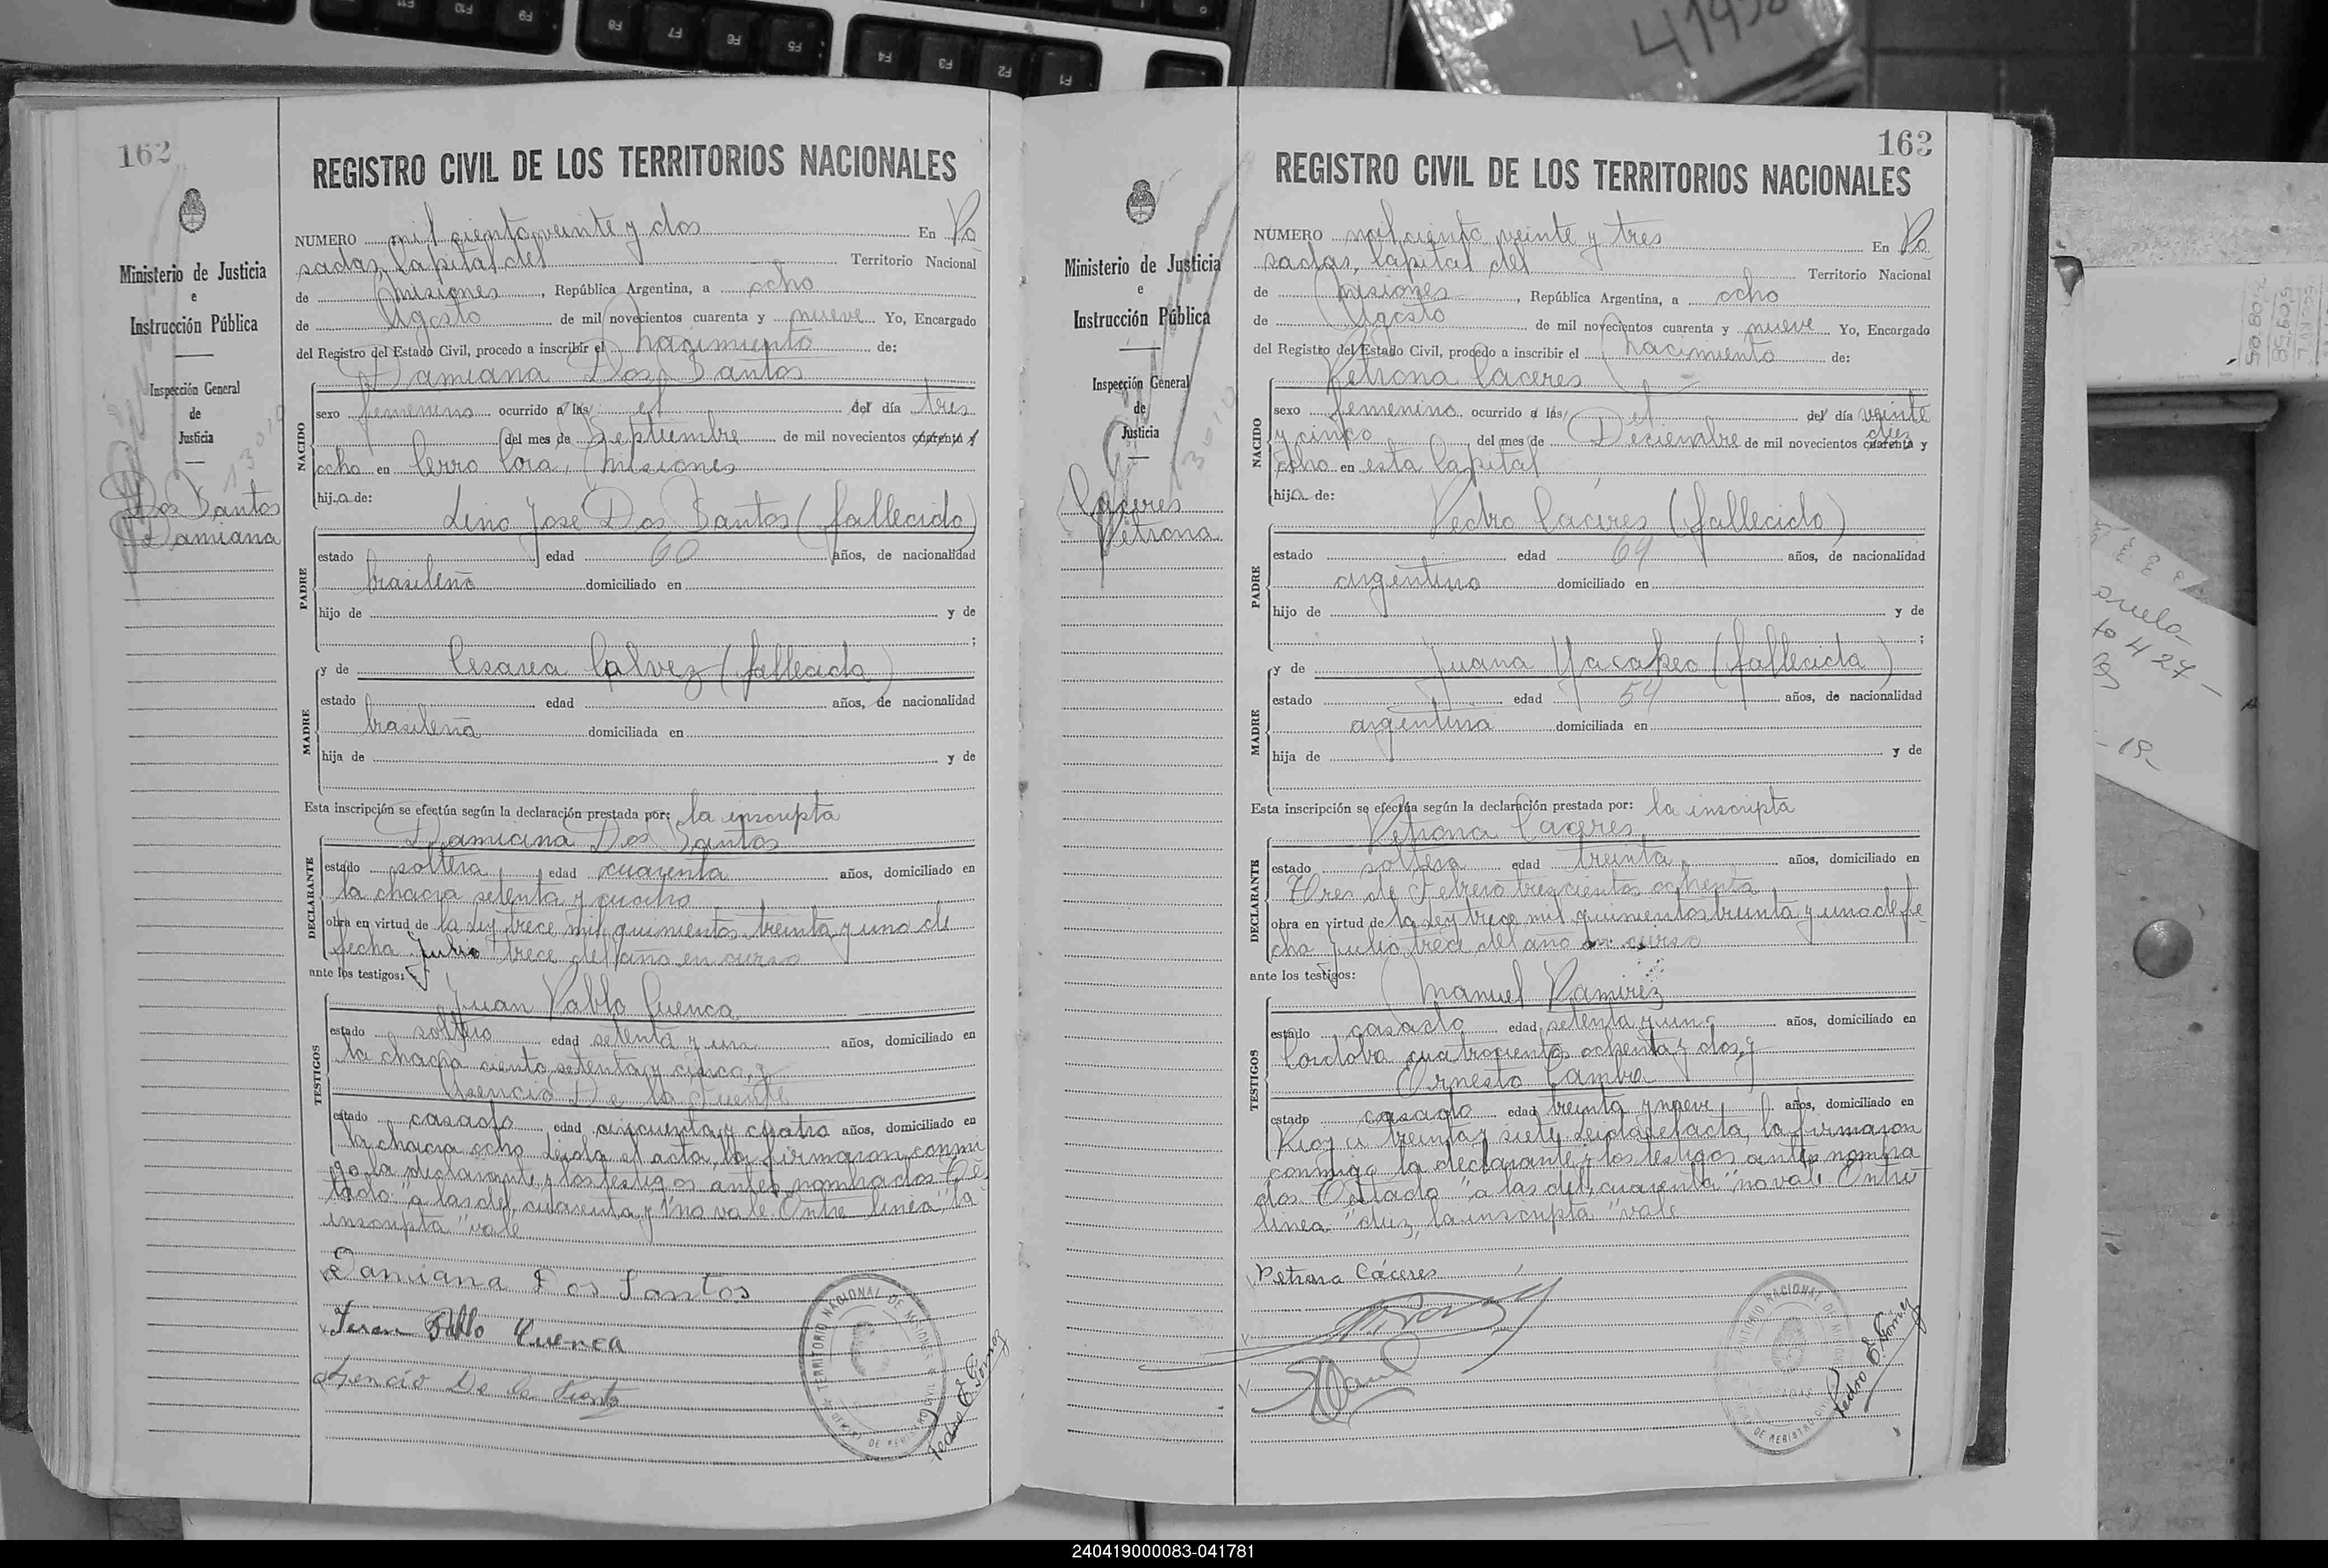 162
REGISTRO CIVIL DE LOS TERRITORIOS NACIONALES
Ministerio de Justicia
e
Instrucción Pública
Inspección General
de
Justicia
Dos Santos
Damiana
NUMERO mil ciento veinte y dos En Po
sadas, Capital del Territorio Nacional
de Misiones, República Argentina, a ocho
de Agosto de mil novecientos cuarenta y nueve Yo, Encargado
del Registro del Estado Civil, procedo a inscribir el nacimiento de:
Damiana Dos Santos
NACIDO
sexo femenino ocurrido a las el del día tres
del mes de Septiembre de mil novecientos cuarenta y
ocho en Cerro Cora, Misiones
hija de:
Lino Jose Dos Santos (fallecido)
PADRE
estado edad 60 años, de nacionalidad
brasileña domiciliado en
hijo de y de
;
y de Cesarea Galvez (fallecida)
MADRE
estado edad años, de nacionalidad
brasileña domiciliada en
hija de y de
Esta inscripción se efectúa según la declaración prestada por: la inscripta
Damiana Dos Santos
DECLARANTE
estado soltera edad cuarenta años, domiciliado en
la chacra setenta y cuatro
obra en virtud de la ley trece mil quinientos treinta y uno de
fecha Julio trece del año en curso
ante los testigos:
Juan Pablo Cuenca
TESTIGOS
estado soltero edad setenta y un años, domiciliado en
la chacra ciento setenta y cinco, y
Asencio De la Fuente
estado casado edad cincuenta y cuatro años, domiciliado en
la chacra ocho Leida el acta, la firmaron conmi
go la declarante y los testigos antes nombrados Te
tado "a las del, cuarenta y" no vale. Entre linea, "la
inscripta" vale
Damiana Dos Santos
Juan Pablo Cuenca
Asencio De la Fuente
TERRITORIO NACIONAL DE MISIONES
Pedro E. Gomez
163
REGISTRO CIVIL DE LOS TERRITORIOS NACIONALES
Ministerio de Justicia
e
Instrucción Pública
Inspección General
de
Justicia
Caceres
Petrona
NUMERO mil ciento veinte y tres En Po
sadas, Capital del Territorio Nacional
de Misiones, República Argentina, a ocho
de Agosto de mil novecientos cuarenta y nueve Yo, Encargado
del Registro del Estado Civil, procedo a inscribir el nacimiento de:
Petrona Caceres
NACIDO
sexo femenino ocurrido a las el del día veinte
y cinco del mes de Diciembre de mil novecientos cuarenta y
diez
ocho en esta Capital
hija de:
Pedro Caceres (fallecido)
PADRE
estado edad 64 años, de nacionalidad
argentino domiciliado en
hijo de y de
;
y de Juana (fallecida)
MADRE
estado edad 54 años, de nacionalidad
argentina domiciliada en
hija de y de
Esta inscripción se efectúa según la declaración prestada por: la inscripta
Petrona Caceres
DECLARANTE
estado soltera edad treinta años, domiciliado en
Tres de Febrero trescientos ochenta
obra en virtud de la ley trece mil quinientos treinta y uno de fe
cha Julio trece del año en curso
ante los testigos:
Manuel Ramirez
TESTIGOS
estado casado edad setenta y uno años, domiciliado en
Cordoba cuatrocientos ochenta y dos, y
Ernesto Cambra
estado casado edad treinta y nueve años, domiciliado en
Rioja treinta y siete Leida el acta, la firmaron
conmigo la declarante y los testigos antes nombra
dos. Testado "a las del, cuarenta" no vale Entre
linea "diez, la inscripta" vale
Petrona Cáceres
DE REGISTRO CIVIL
Pedro E. Gomez
240419000083-041781